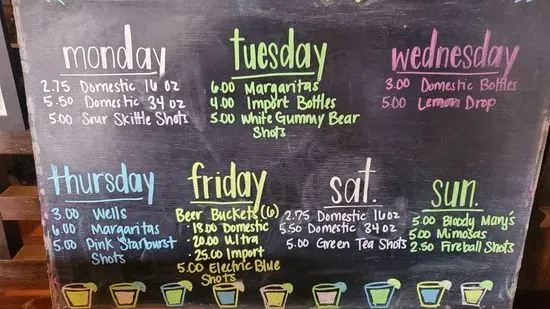 monday
2.75 Domestic 16 oz
5.50 Domestic 34 oz
5.00 Sour Skittle Shots
tuesday
6.00 Margaritas
4.00 Import Bottles
5.00 White Gummy Bear
Shots
wednesday
3.00 Domestic Bottles
5.00 Lemon Drop
thursday
3.00 Wells
6.00 Margaritas
5.00 Pink Starburst
Shots
friday
Beer Buckets (6)
· 18.00 Domestic
· 20.00 Ultra
· 25.00 Import
5.00 Electric Blue
Shots
sat.
2.75 Domestic 16oz
5.50 Domestic 34 oz
5.00 Green Tea Shots
sun.
5.00 Bloody Mary's
5.00 Mimosas
2.50 Fireball Shots